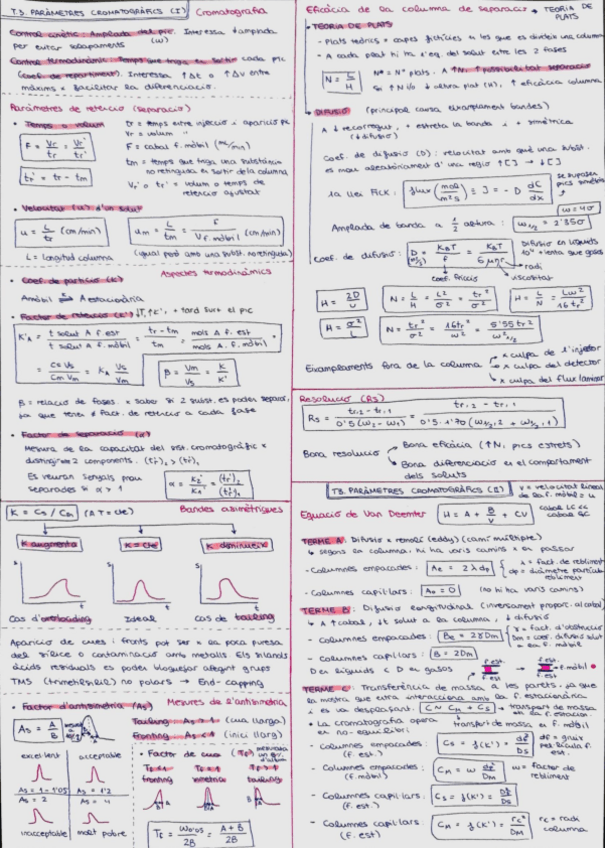 T.3. PARÀMETRES CROMATOGRÀFICS (I) Cromatografia
Control cinètic: Amplada del pic. Interessa ↓ amplada
per evitar solapaments (W)
Control termodinàmic: Temps que triga en sortir cada pic
(Coef. de repartiment). Interessa ↑Δt o ↑Δv entre
màxims x facilitar la diferenciació.
Paràmetres de retenció (separació)
• Temps o volum
tr = temps entre injecció i aparició pic
Vr = volum "
F = Vr/tr = Vr'/tr'
F = cabal f. mòbil (mL/min)
tr' = tr - tm
tm = temps que triga una substància
no retinguda en sortir de la columna
Vr' o tr' = volum o temps de
retenció ajustat
• Velocitat (u) d'un solut
u = L/tr (cm/min)
um = L/tm = F/Vf. mòbil (cm/min)
L = longitud columna
(igual però amb una subst. no retinguda)
Aspectes termodinàmics
• Coef de partició (K)
Amòbil ⇌ Aestacionària
• Factor de retenció (K') ↓T, ↑K', + tard surt el pic
K'A = t solut A f. est / t solut A f. mòbil = tr - tm / tm = mols A f. est / mols A f. mòbil =
= Cs Vs / Cm Vm = KA Vs/Vm
β = Vm/Vs = K/K'
β = relació de fases. x saber si 2 subst. es poden separar,
ja que tenen ≠ fact. de retenció a cada fase
• Factor de separació (α)
Mesura de la capacitat del sist. cromatogràfic x
distingir 2 components. (tr')2 > (tr')1
Es veuran senyals prou
separades si α > 1
α = K2'/K1' = (tr')2/(tr')1
K = Cs / Cm (A T = cte) Bandes asimètriques
K augmenta K = cte K disminueix
s s s
t t t
Cas d'overloading Ideal Cas de tailing
Aparició de cues i fronts pot ser x la poca puresa
del sílice o contaminació amb metalls. Els silanols
àcids residuals es poden bloquejar afegint grups
TMS (trimetilsilil) no polars → End-capping
• Factor d'asimetria (As) Mesures de l'asimetria
As = A/B
Tailing As > 1 (cua llarga)
Fronting As < 1 (inici llarg)
excel·lent acceptable
As = 1 - 1'05 As = 1'2
As = 2 As = 4
inacceptable molt pobre
• Factor de cua (Tf)
fronting simetria tailing
A B
Tf = W0'05 / 2B = A + B / 2B
Eficàcia de la columna de separació → TEORIA DE PLATS
• TEORIA DE PLATS
- Plats teòrics = capes fictícies en les que es divideix una columna
- A cada plat hi ha l'eq. del solut entre les 2 fases
N = L/H
N = Nº plats. A ↑N, ↑ possibilitat separació
Si ↑N i/o ↓ altura plat (H), ↑ eficàcia columna
• DIFUSIÓ (principal causa eixamplament bandes)
A ↓ recorregut, + estreta la banda i + simètrica
(↓ difusió)
Coef. de difusió (D): velocitat amb què una subst.
es mou aleatòriament d'una regió ↑[ ] → ↓[ ]
1a llei FICK: flux (mol/m²s) ≡ J = - D dC/dx
se suposen pics simètrics
w = 4σ
Amplada de banda a 1/2 altura: w1/2 = 2'35σ
Coef. de difusió: D (m²/s) = KBT/f = KBT/6πηr
coef. fricció
radi
viscositat
H = 2D/u
N = L/H = L²/σ² = tr²/σ²
H = L/N = Lw²/16tr²
H = σ²/L
N = tr²/σ² = 16tr²/w² = 5'55tr²/w²1/2
Eixamplaments fora de la columna
x culpa de l'injector
x culpa del detector
x culpa del flux laminar
Resolució (Rs)
Rs = tr,2 - tr,1 / 0'5(w2 - w1) = tr,2 - tr,1 / 0'5·1'70(w1/2,2 + w1/2,1)
Bona resolució
Bona eficàcia (↑N, pics estrets)
Bona diferenciació en el comportament
dels soluts
T3. PARÀMETRES CROMATOGRÀFICS (II)
v = velocitat lineal
de la f. mòbil = u
Equació de Van Deemter H = A + B/v + Cv
cabal LC <<
cabal GC
TERME A: Difusió x remolí (eddy) (camí múltiple)
↳ segons la columna, hi ha varis camins x on passar
- Columnes empacades: Ae = 2λdp
λ = fact. de rebliment
dp = diàmetre partícula rebliment
- Columnes capil·lars: Ae = 0 (no hi ha varis camins)
TERME B: Difusió longitudinal (inversament proporc. al cabal)
↳ A ↑ cabal, ↓t solut a la columna, i ↓ difusió
- Columnes empacades: Be = 2γDm
γ = fact. d'obstrucció
Dm = coef. difusió solut
a la f. mòbil
- Columnes capil·lars: B = 2Dm
D en líquids < D en gasos
f. est. f. est f. mòbil
f. est f. est
TERME C: Transferència de massa a les parets, ja que
la mostra que entra interacciona amb la f. estacionària
i es va desplaçant. C ≈ CM + CS
transport de massa
en la f. estacion.
• La cromatografia opera transport de massa f. mòbil
en no-equilibri
- Columnes empacades: (f. est.) Cs = f(K') = df²/Ds
df = gruix
pel·lícula f. est.
- Columnes empacades: (f. mòbil) CM = w dp²/DM
w = factor de
rebliment
- Columnes capil·lars: Cs = f(K') = df²/Ds
- Columnes capil·lars: (f. est) CM = f(K') = rc²/DM
rc = radi
columna